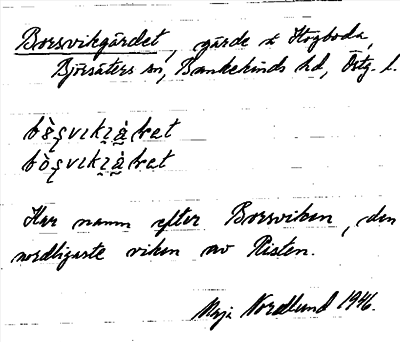 Borsvikgärdet, gärde t Högboda,
Björsäters sn, Bankekinds hd, Östg. l.
Har namn efter Borsviken, den
nordligaste viken av Risten.
Maja Nordlund 1946.